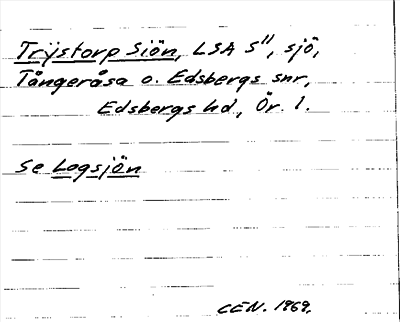 Trystorp Siön, LSA S", sjö,
Tångeråsa o. Edsbergs snr,
Edsbergs hd, Ör. l.
se Logsjön
CEN. 1969.